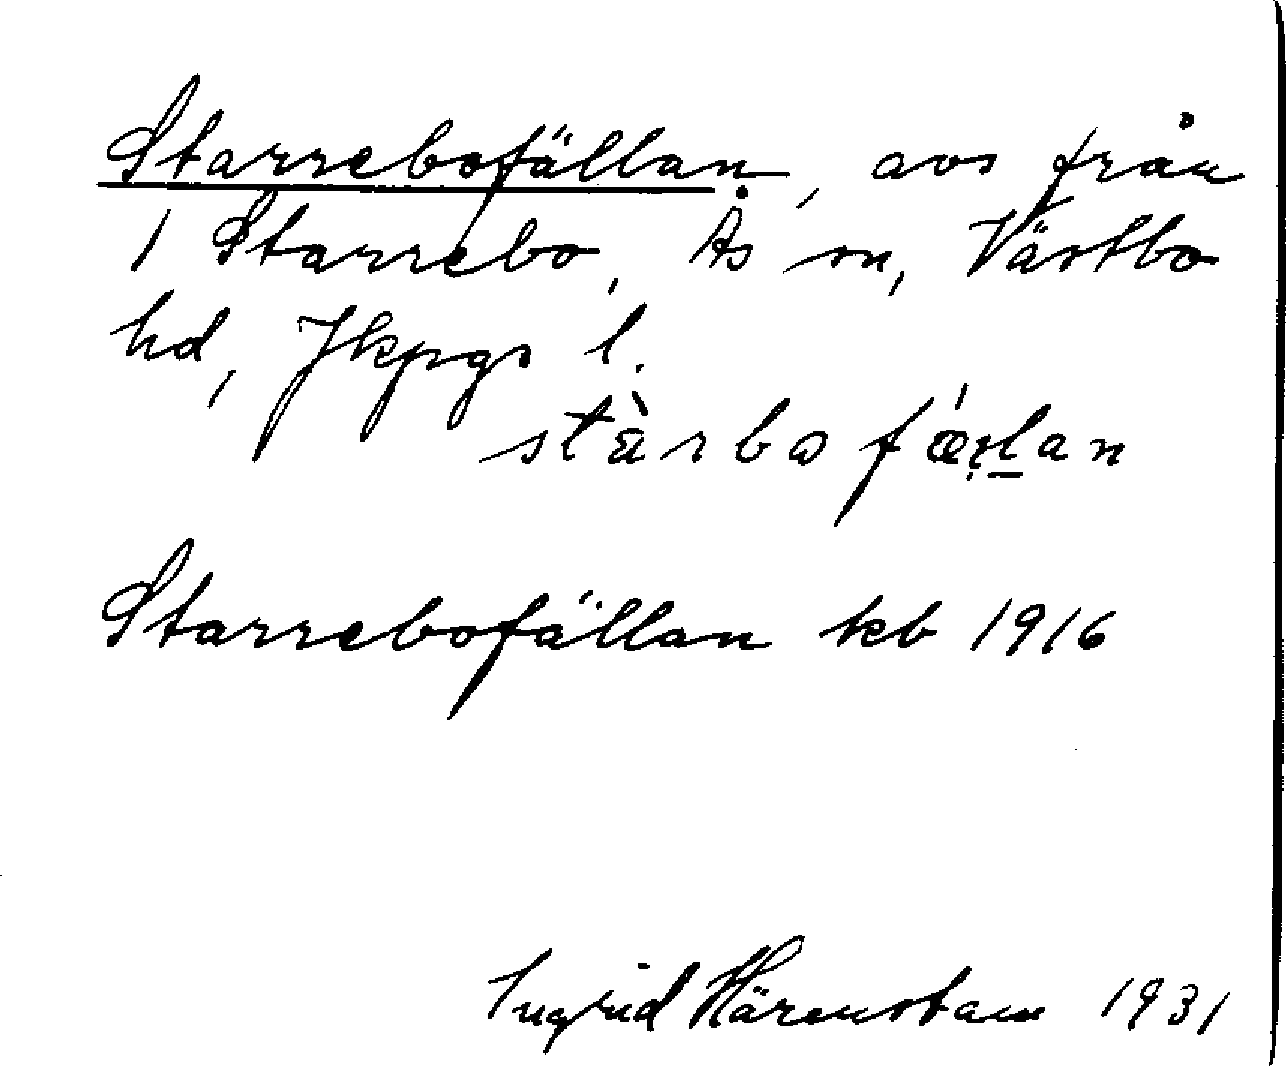 Starrebofällan, avs från
1 Starrebo, Ås sn, Västbo
hd, Jkpgs l.
stàrbofǽḷḻan
Starrebofällan kb 1916
Ingrid Härenstam 1931